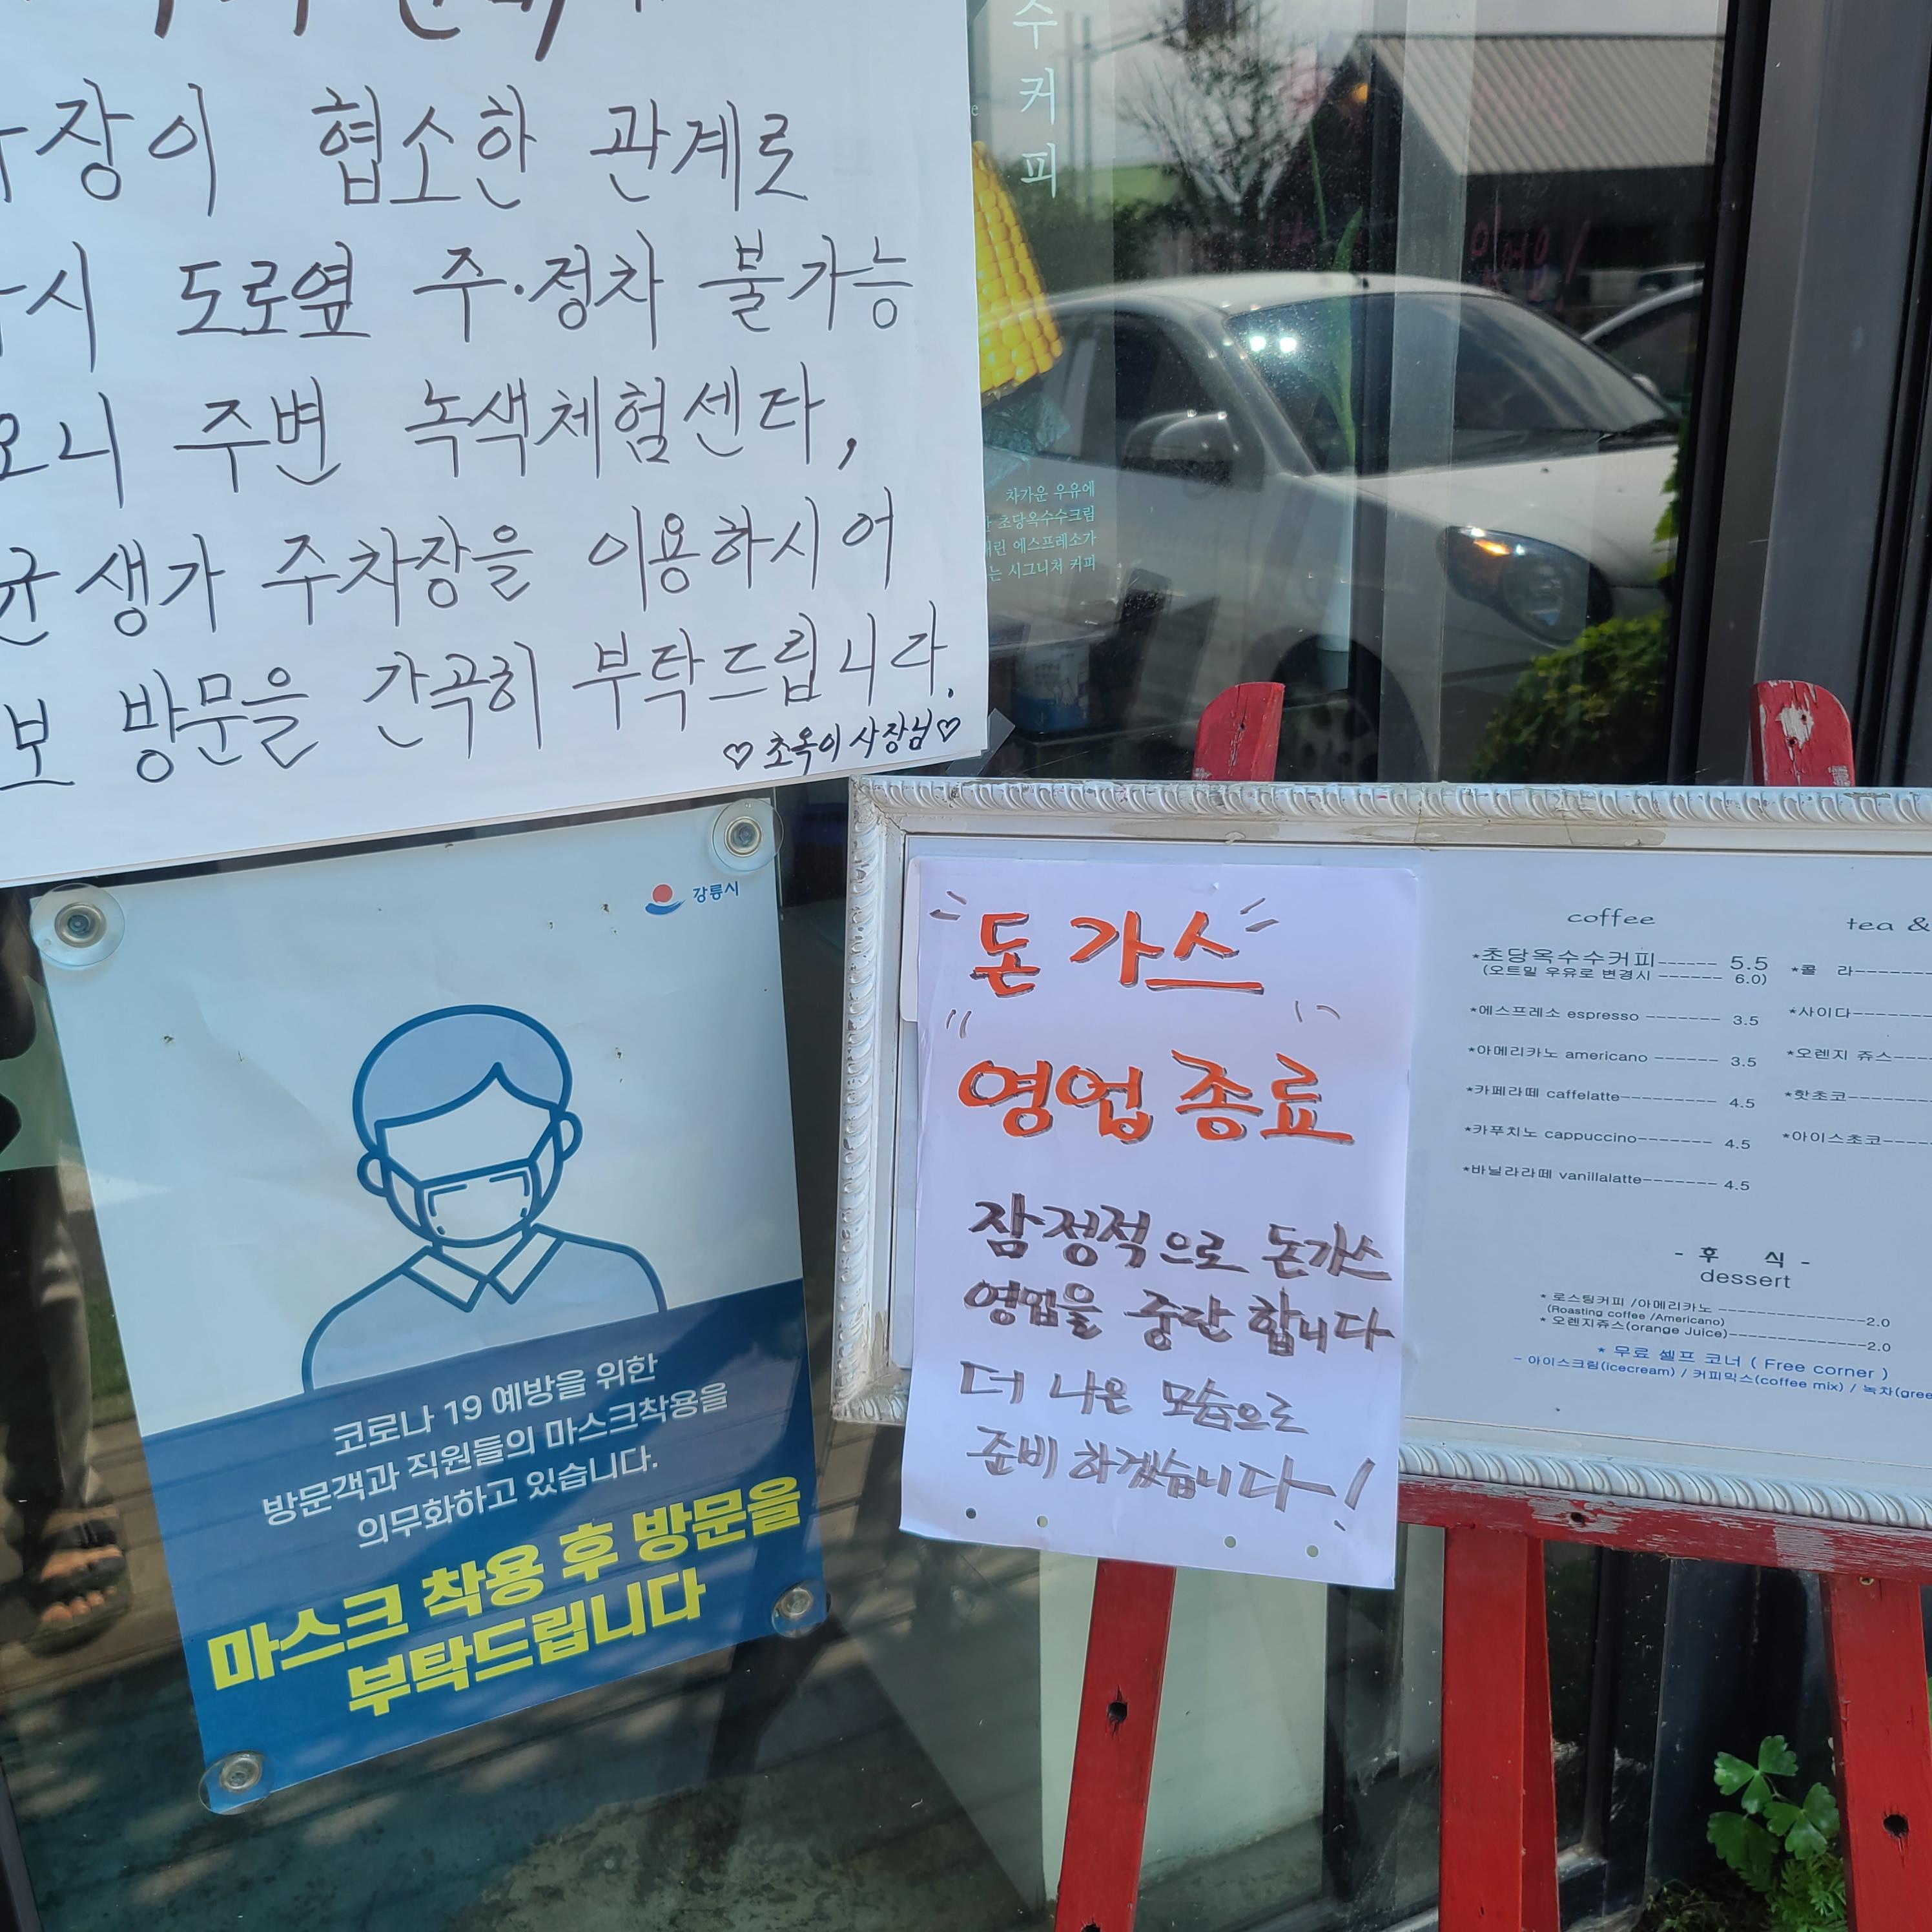 장이 협소한 관계로
시 도로옆 주·정차 불가능
오니 주변 녹색체험센타,
균생가 주차장을 이용하시어
보 방문을 간곡히 부탁드립니다.
♡ 초옥이 사장님 ♡
수커피
차가운 우유에
초당옥수수크림
에스프레소가
는 시그니처 커피
강릉시
코로나 19 예방을 위한
방문객과 직원들의 마스크착용을
의무화하고 있습니다.
마스크 착용 후 방문을
부탁드립니다
돈가스
영업종료
잠정적으로 돈가스
영업을 중단 합니다
더 나은 모습으로
준비 하겠습니다~!
coffee
*초당옥수수커피------ 5.5
(오트밀 우유로 변경시 ------ 6.0)
*에스프레소 espresso ------- 3.5
*아메리카노 americano ------ 3.5
*카페라떼 caffelatte--------- 4.5
*카푸치노 cappuccino------- 4.5
*바닐라라떼 vanillalatte------- 4.5
tea &
*콜 라-------
*사이다-------
*오렌지 쥬스----
*핫초코-------
*아이스초코----
- 후 식 -
dessert
* 로스팅커피 /아메리카노 ----------------2.0
(Roasting coffee /Americano)
* 오렌지쥬스(orange Juice)---------------2.0
* 무료 셀프 코너 ( Free corner )
- 아이스크림(icecream) / 커피믹스(coffee mix) / 녹차(gree